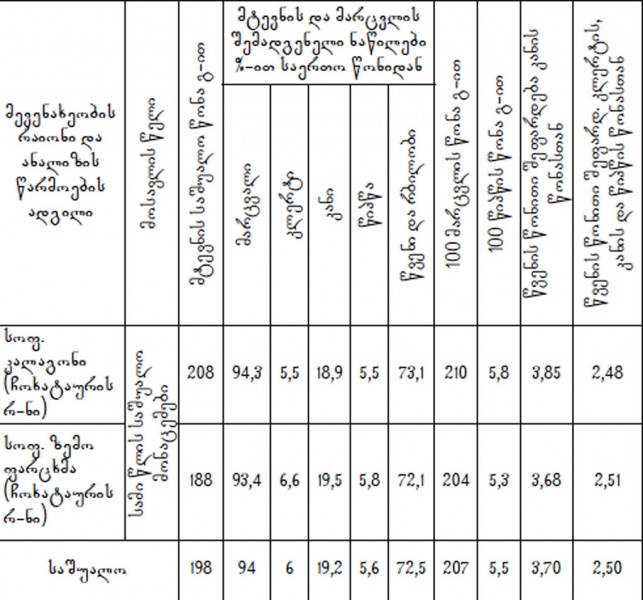 მევენახეობის
რაიონი და
ანალიზის
წარმოების
ადგილი
მოსავლის წელი
მტევნის საშუალო წონა გ-ით
მტევნის და მარცვლის
შემადგენელი ნაწილები
%-ით საერთო წონიდან
მარცვალი
კლერტი
კანი
წიპწა
წვენი და რბილობი
100 მარცვლის წონა გ-ით
100 წიპწის წონა გ-ით
წვენის წონითი შეფარდება კანის
წონასთან
წვენის წონითი შეფარდ. კლერტის,
კანის და წიპწის წონასთან
სოფ.
კალაგონი
(ჩოხატაურის
რ-ნი)
სამი წლის საშუალო
მონაცემები
208 94,3 5,5 18,9 5,5 73,1 210 5,8 3,85 2,48
სოფ. ზემო
ფარცხმა
(ჩოხატაურის
რ-ნი)
188 93,4 6,6 19,5 5,8 72,1 204 5,3 3,68 2,51
საშუალო 198 94 6 19,2 5,6 72,5 207 5,5 3,70 2,50